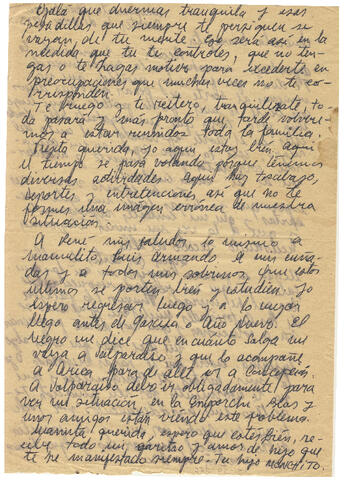 Ojalá que duermas tranquila y esas
pesadillas que siempre te persiguen se
vayan de tu mente. Eso será así en la
medida que tu te controles, que no ten-
gas o te hagas motivos para excederte en
preocupaciones que muchas veces no te co-
rresponden.
Te ruego y te reitero, tranquilízate, to-
do pasará y más pronto que tarde volvere-
mos a estar reunidos toda la familia.
querida, yo aquí estoy bien, aquí
el tiempo se pasa volando porque tenemos
diversas actividades aquí hay trabajo,
deportes y entretenciones así que no te
formes una imágen errónea de nuestra
situación.
A René mis saludos lo mismo a
Manolito, Luis Armando a mis cuña-
das y a todos mis sobrinos, que estos
últimos se porten bien y estudien. Yo
espero regresar luego y a lo mejor
llego antes de Pascua o Año Nuevo. El
negro me dice que en cuanto salga me
vaya a Valparaíso y que lo acompañe
a Arica para de allí ir a Concepción.
A Valparaíso debo ir obligadamente para
ver mi situación, en la Emporchi. Blas y
unos amigos están viendo este problema.
Mamita querida, espero que estés bien, re-
cibe todo mi cariño y amor de hijo que
te he manifestado siempre - Tu hijo MONCHITO.